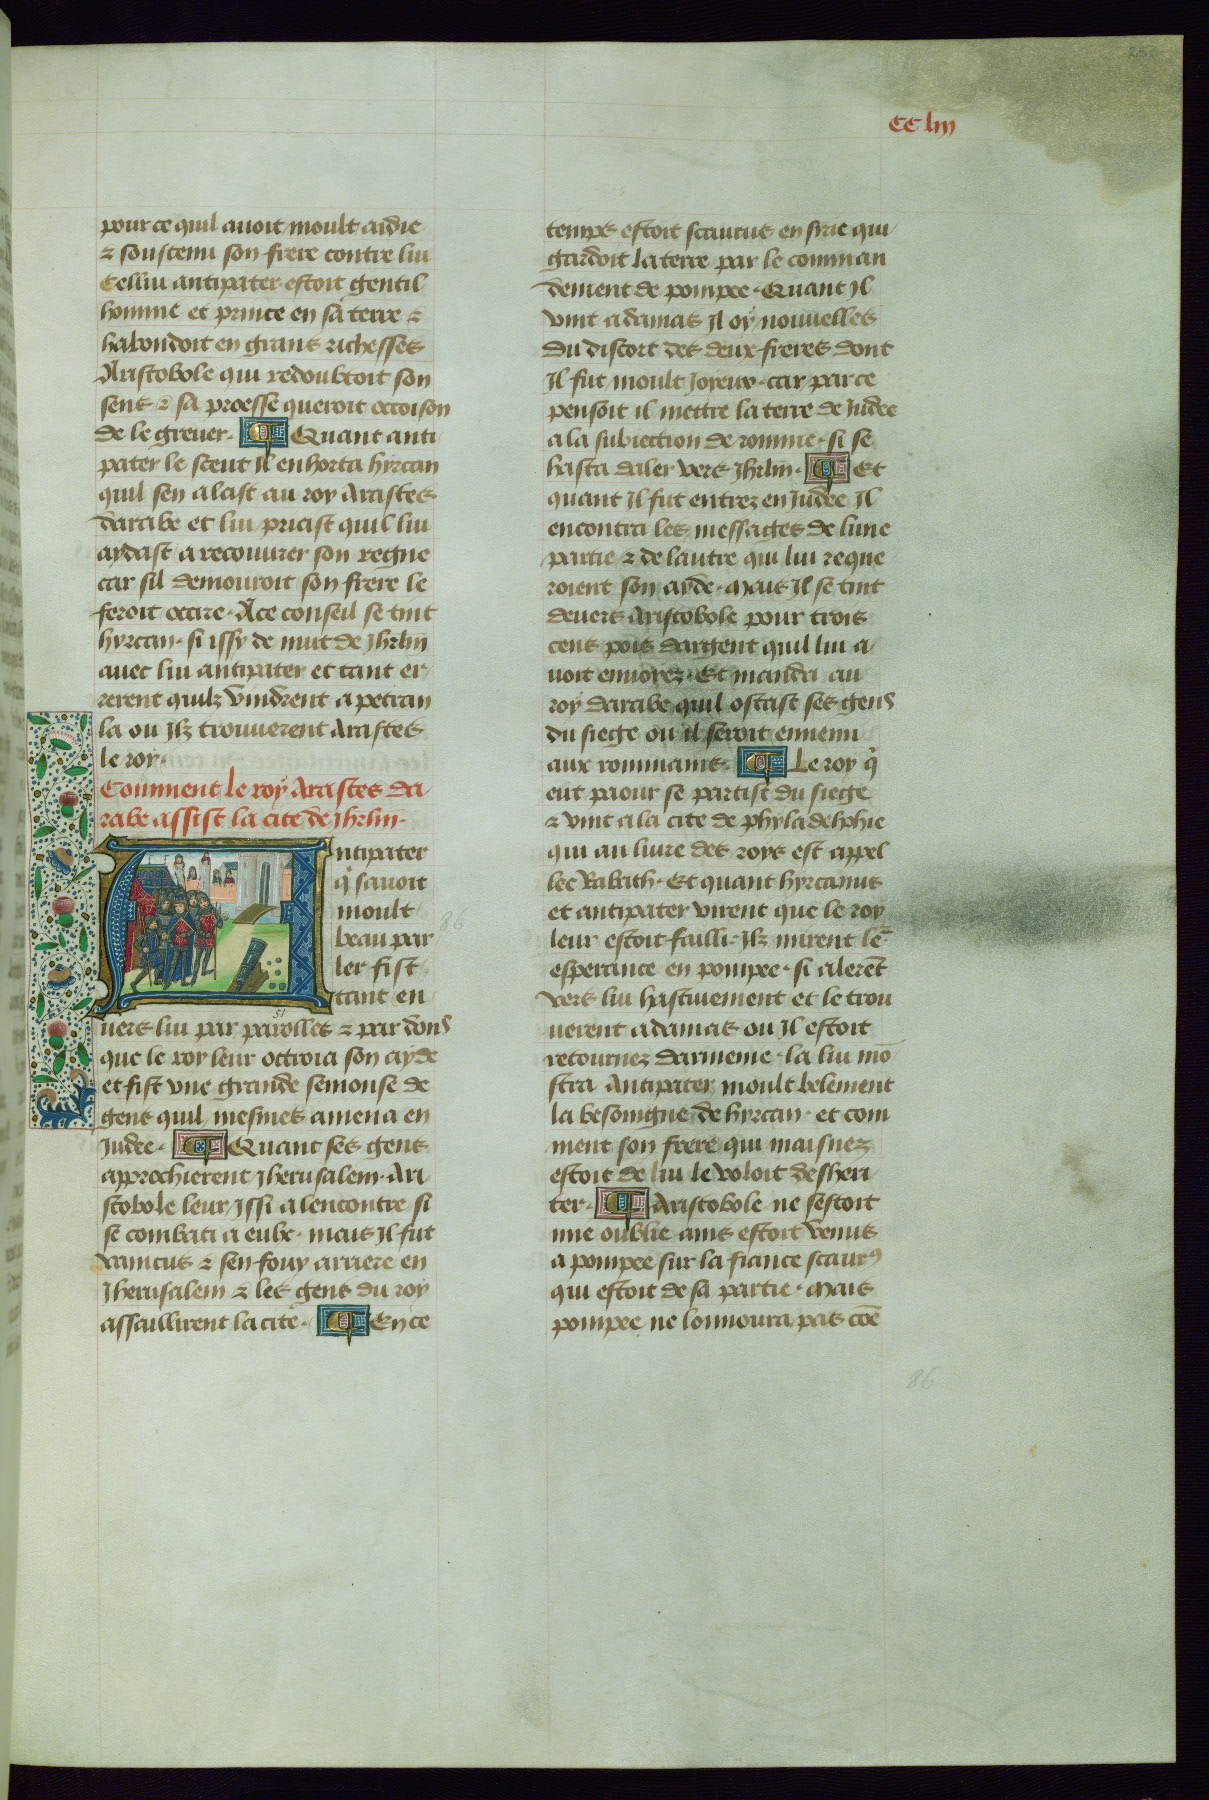 CC liii
pour ce quil auoit moult aidie
⁊ soustenu son frere contre lui
Cellui antipater estoit gentil
homme et prince en sa terre ⁊
habondoit en grans richesses
Aristobole qui redoubtoit son
sens ⁊ sa proesse queroit occoison
de le greuer. Quant anti
pater le sceut Il enhorta hyrcan
quil sen alast au roy Arastes
darabe et lui priast quil lui
aydast a recouurer son regne
car sil demouroit son frere le
feroit occire. A ce conseil se tint
hyrcan. si issy de nuit de Jhrlm
auec lui antipater et tant er
rerent quilz vindrent a petran
la ou Ilz trouuerent Arastes
le roy.
Comment le roy Arastes da
rabe assist la cite de Jhrlm.
Antipater
q̄ sauoit
moult
beau par
ler fist
tant en
uers lui par parolles ⁊ par dons
que le roy leur octroia son ayde
et fist vne grande semonse de
gens quil mesmes amena en
Iudee. Quant ses gens
approchierent Jherusalem. Ari
stobole leur Issi a lencontre si
se combati a eulx. mais Il fut
vaincus ⁊ sen fouy arriere en
Jherusalem ⁊ les gens du roy
assaillirent la cite. En ce
temps estoit scaurus en sirie qui
gardoit la terre par le comman
dement de pompee. Quant Il
vint a damas Il oy nouuelles
du discort des deux freres dont
Il fut moult Joyeux. car par ce
pensoit il mettre la terre de Judee
a la subiection de romme. si se
hasta daler vers Jhrlm. Et
quant Il fut entrez en Judee Il
encontra les messages de lune
partie ⁊ de lautre qui lui reque
roient son ayde. Mais Il se tint
deuers Aristobole pour trois
cens pois dargent quil lui a
uoit enuoyez. Et manda au
roy darabe quil ostast ses gens
du siege ou il seroit ennemi
aux rommains. Le roy q̄
eut paour se partist du siege
⁊ vint a la cite de phyladelphie
qui au liure des roys est appel
lee Rabath. Et quant hyrcanus
et antipater virent que le roy
leur estoit failli. Ilz mirent le᷑
esperance en pompee. si alerēt
vers lui hastiuement et le trou
uerent a damas ou Il estoit
retournez darmenie. la lui mō
stra Antipater moult belement
la besoingne de hyrcan. et com
ment son frere qui maisnez
estoit de lui le voloit desheri
ter. Aristobole ne sestoit
mie oublie ains estoit venus
a pompee sur la fiance scaurꝰ
qui estoit de sa partie. Mais
pompee ne lonnoura pas cōe
86
51
86